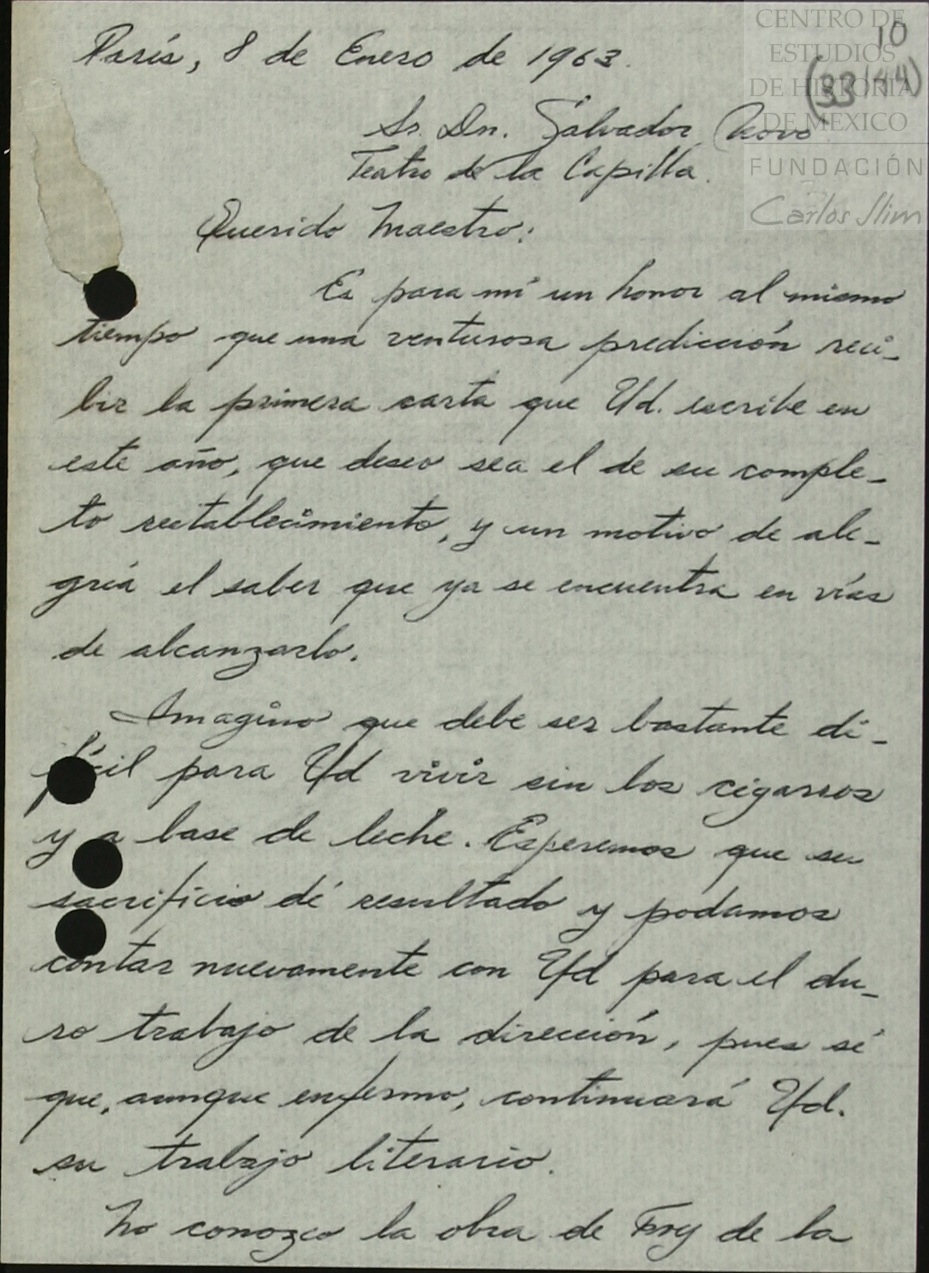 CENTRO DE
ESTUDIOS
DE HISTORIA
DE MEXICO
FUNDACIÓN
Carlos Slim
10
(33/44)
París, 8 de Enero de 1963.
Sr. Dn. Salvador Novo
Teatro de la Capilla.
Querido Maestro:
Es para mí un honor al mismo
tiempo que una venturosa predicción reci-
bir la primera carta que Ud. escribe en
este año, que deseo sea el de su comple-
to restablecimiento, y un motivo de ale-
gría el saber que ya se encuentra en vías
de alcanzarlo.
Imagino que debe ser bastante di-
fícil para Ud vivir sin los cigarros
y a base de leche. Esperemos que su
sacrificio dé resultado y podamos
contar nuevamente con Ud para el du-
ro trabajo de la dirección, pues sé
que, aunque enfermo, continuará Ud.
su trabajo literario.
No conozco la obra de Fry de la